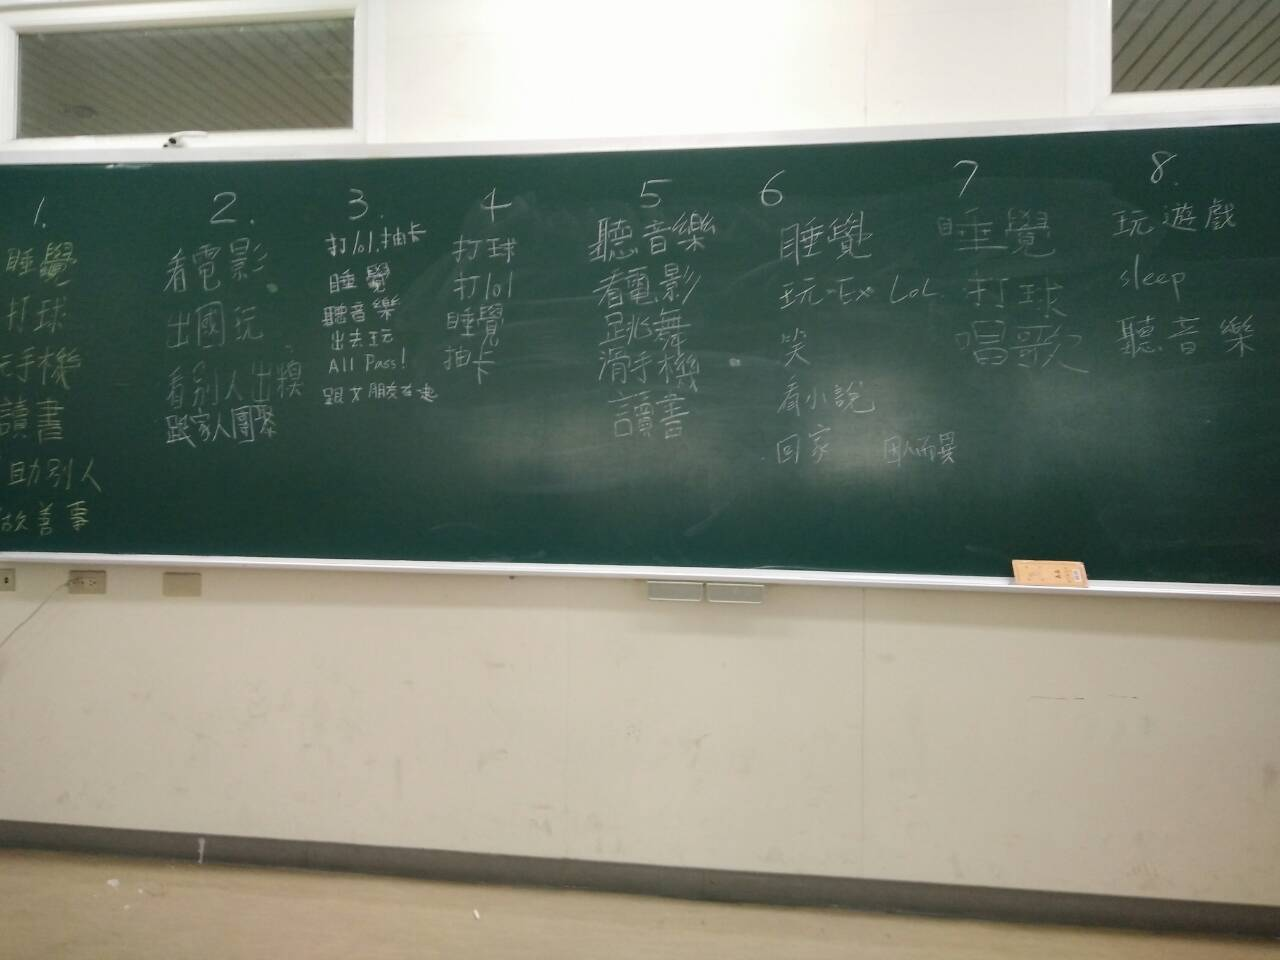 1.
睡覺
打球
玩手機
讀書
助別人
做善事
2.
看電影
出國玩
看別人出糗
跟家人團聚
3.
打lol.抽卡
睡覺
聽音樂
出去玩
All Pass!
跟女朋友在一起
4
打球
打lol
睡覺
抽卡
5
聽音樂
看電影
跳舞
滑手機
讀書
6
睡覺
玩 LoL
笑
看小說
回家 因人而異
7
睡覺
打球
唱歌
8.
玩遊戲
sleep
聽音樂